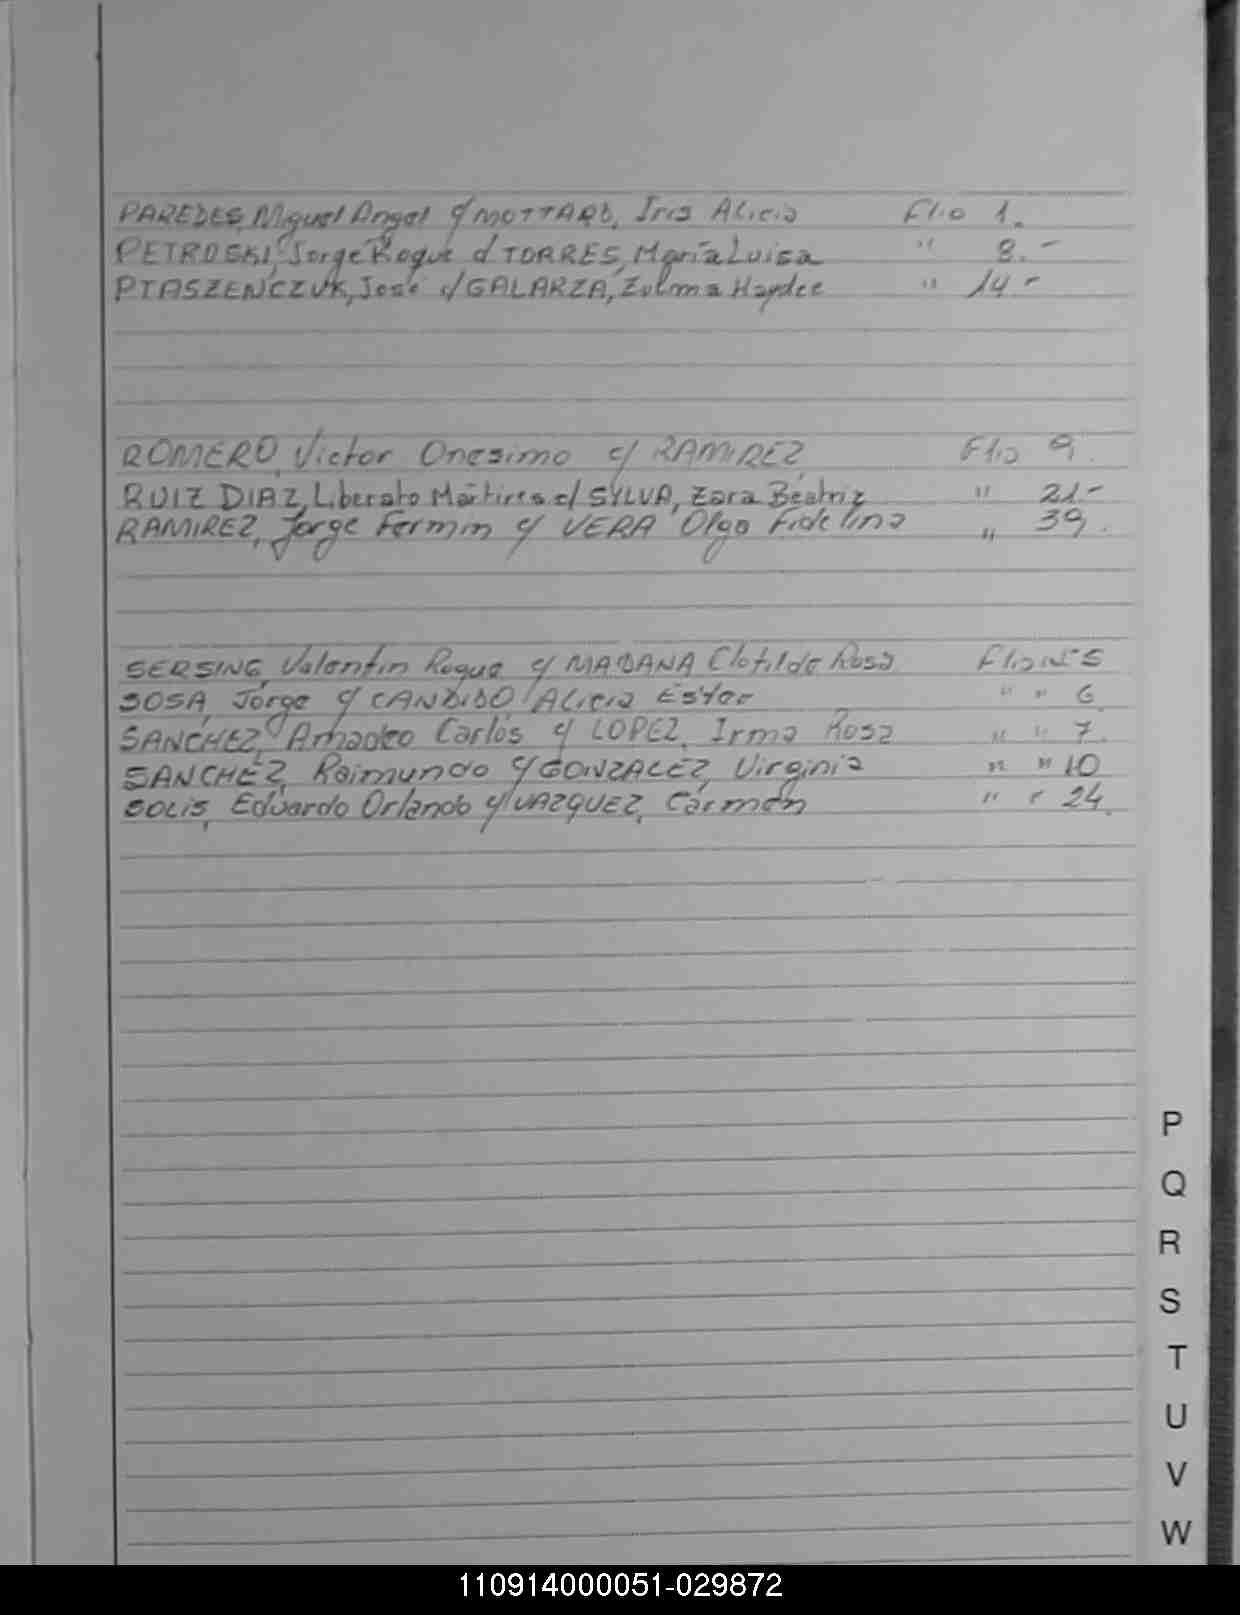 PAREDES, Miguel Angel c/ MOTTARD, Iris Alicia Flio 1.
PETROSKI, Jorge Roque c/ TORRES, María Luisa " 8.-
PTASZENCZUK, José c/ GALARZA, Zulma Haydee " 14-
ROMERO, Victor Onesimo c/ RAMIREZ, Flio 9.
RUIZ DIAZ, Liberato Mártires c/ SYLVA, Zara Beatriz " 21-
RAMIREZ, Jorge Fermin c/ VERA Olga Fidelina " 39.
SERSING, Valentin Roque c/ MADANA Clotilde Rosa Flio Nº5
SOSA, Jorge c/ CANDIDO Alicia Ester " " 6
SANCHEZ, Amadeo Carlos c/ LOPEZ, Irma Rosa " " 7.
SANCHEZ, Raimundo c/ GONZALEZ, Virginia " " 10
SOLIS, Eduardo Orlando c/ VAZQUEZ, Carmen " " 24.
P
Q
R
S
T
U
V
W
110914000051-029872